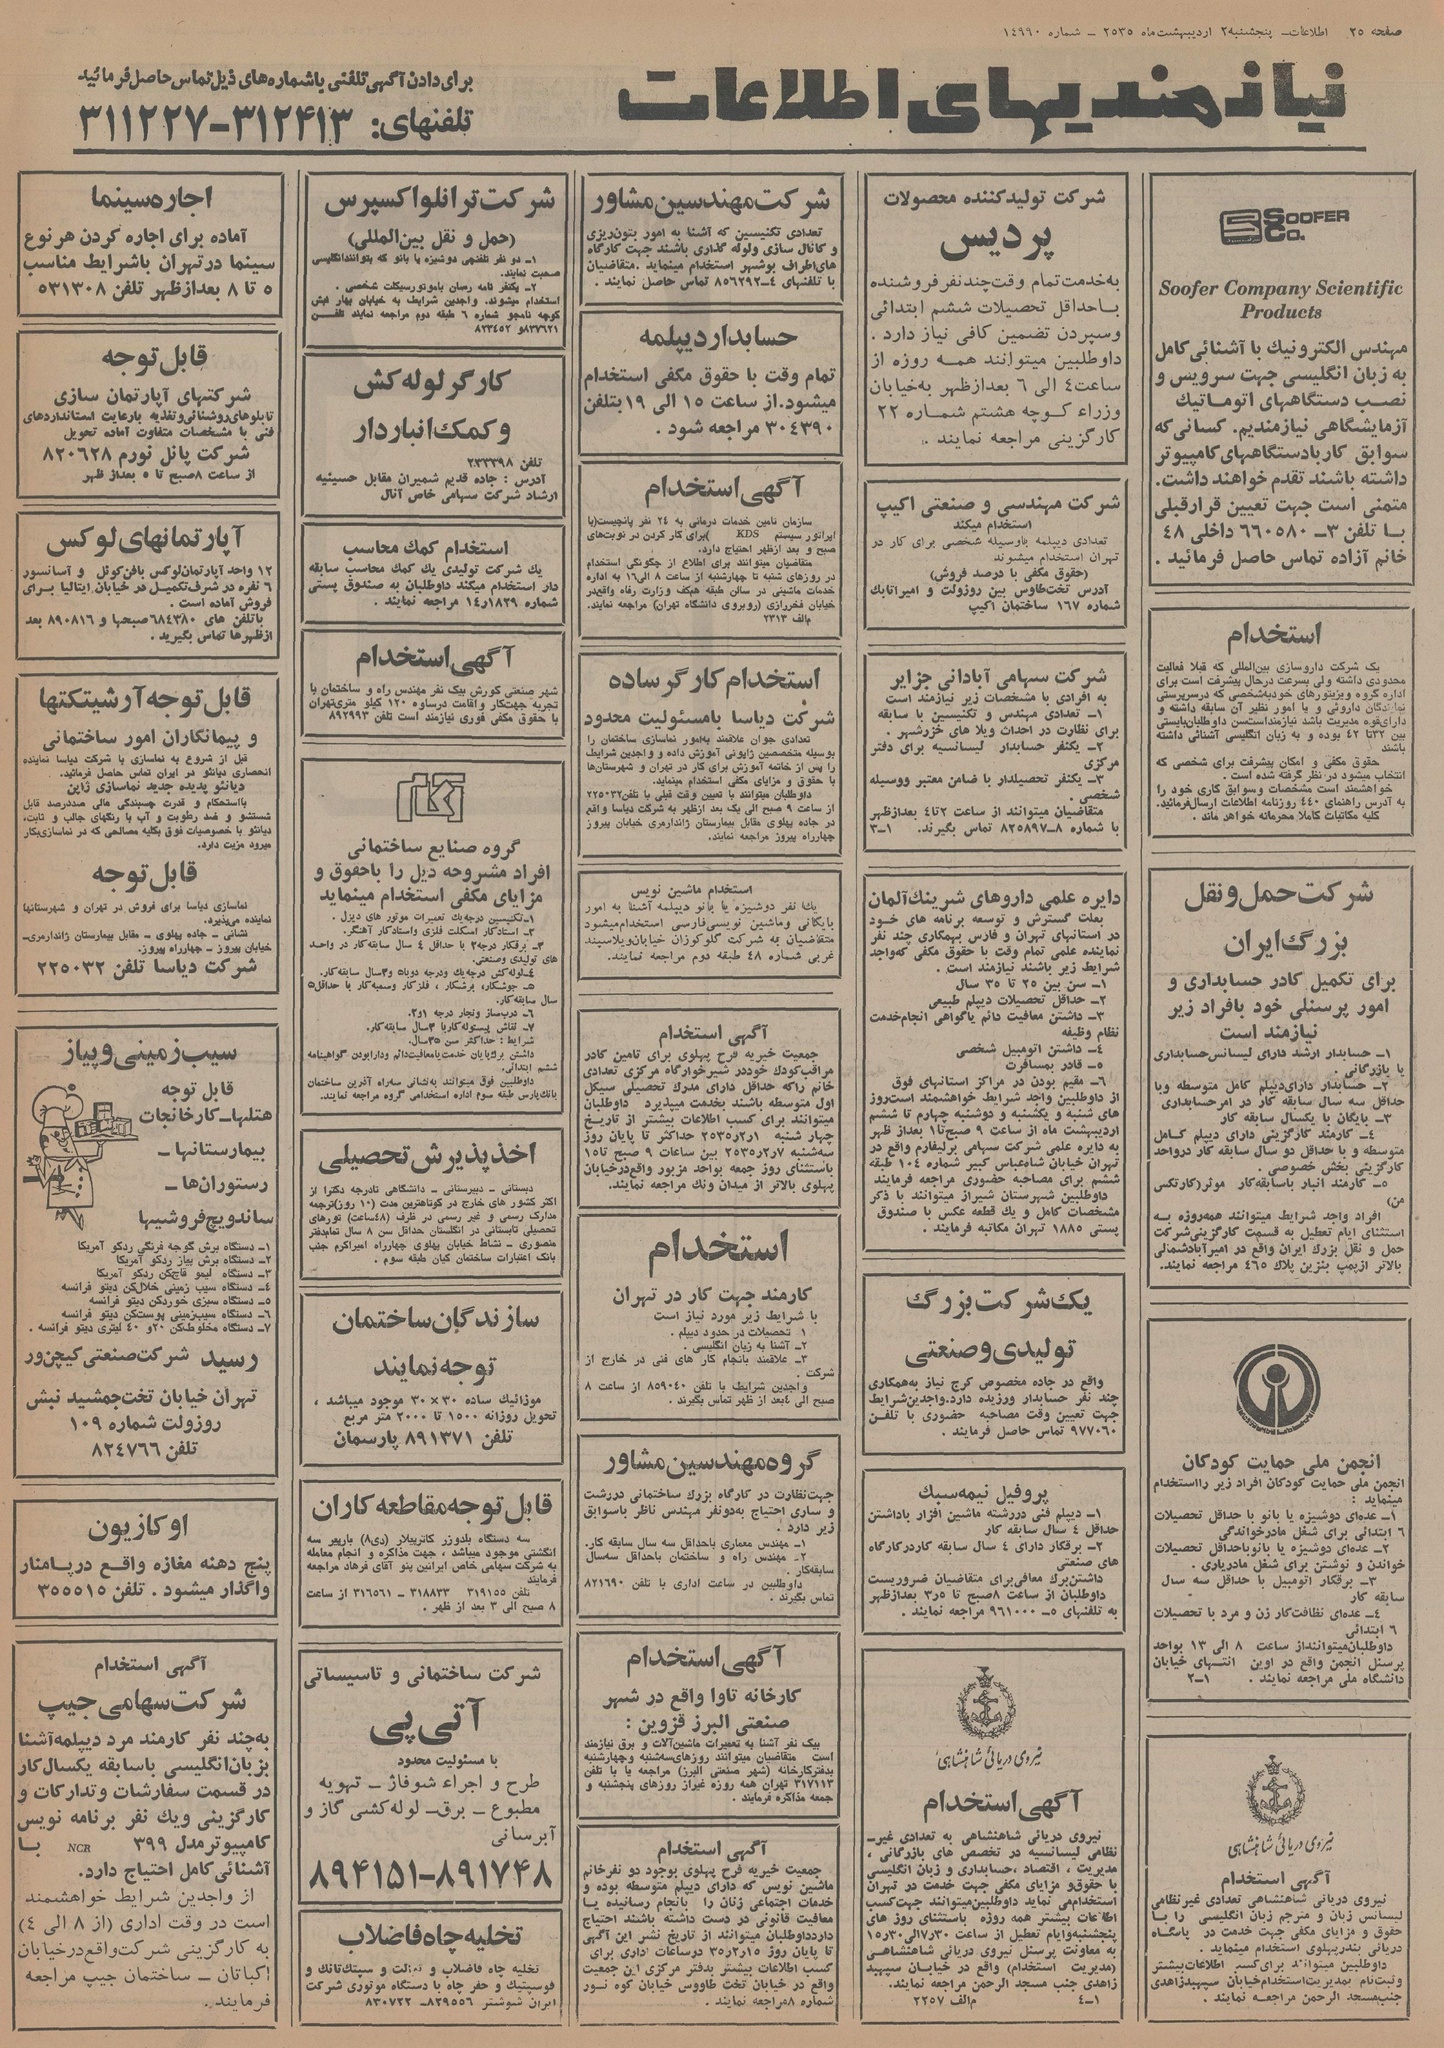 صفحه ۲۵ اطلاعات ـ پنجشنبه ۲ اردیبهشت ماه ۲۵۳۵ ـ شماره ۱۴۹۹۰
نیازمندیهای اطلاعات
برای دادن آگهی تلفنی با شماره‌های ذیل تماس حاصل فرمائید
تلفنهای: ۳۱۲۴۱۳-۳۱۱۲۲۷
SOOFER CO.
Soofer Company Scientific
Products
مهندس الکترونیك با آشنائی کامل
به زبان انگلیسی جهت سرویس و
نصب دستگاههای اتوماتیك
آزمایشگاهی نیازمندیم. کسانی که
سوابق کار با دستگاههای کامپیوتر
داشته باشند تقدم خواهند داشت.
متمنی است جهت تعیین قرار قبلی
با تلفن ۳ـ ۶۶۰۵۸۰ داخلی ۴۸
خانم آزاده تماس حاصل فرمائید .
استخدام
یک شرکت داروسازی بین‌المللی که قبلا فعالیت
محدودی داشته ولی بسرعت درحال پیشرفت است برای
اداره گروه ویزیتورهای خود به شخصی که درسرپرستی
نمایندگان داروئی و یا امور نظیر آن سابقه داشته و
دارای قوه مدیریت باشد نیازمند است سن داوطلب بایستی
بین ۳۲ تا ۴۲ بوده و به زبان انگلیسی آشنائی داشته
باشند
حقوق مکفی و امکان پیشرفت برای شخصی که
انتخاب میشود در نظر گرفته شده است .
خواهشمند است مشخصات و سوابق کاری خود را
به آدرس راهنمای ۴۴۰ روزنامه اطلاعات ارسال فرمائید.
کلیه مکاتبات کاملا محرمانه خواهد ماند .
شرکت حمل و نقل
بزرگ ایران
برای تکمیل کادر حسابداری و
امور پرسنلی خود بافراد زیر
نیازمند است
۱ـ حسابدار ارشد دارای لیسانس حسابداری
یا بازرگانی .
۲ـ حسابدار دارای دیپلم کامل متوسطه و با
حداقل سه سال سابقه کار در امر حسابداری
۳ـ بایگان با یکسال سابقه کار
۴ـ کارمند کارگزینی دارای دیپلم کامل
متوسطه و با حداقل دو سال سابقه کار در واحد
کارگزینی بخش خصوصی .
۵ـ کارمند انبار با سابقه کار موثر (کارتکس
من)
افراد واجد شرایط میتوانند همه‌روزه به
استثنای ایام تعطیل به قسمت کارگزینی شرکت
حمل و نقل بزرگ ایران واقع در امیرآباد شمالی
بالاتر از پمپ بنزین پلاك ۴۶۵ مراجعه نمایند.
انجمن ملی حمایت کودکان
انجمن ملی حمایت کودکان افراد زیر را استخدام
مینماید :
۱ـ عده‌ای دوشیزه یا بانو با حداقل تحصیلات
۶ ابتدائی برای شغل مادرخواندگی
۲ـ عده‌ای دوشیزه یا بانو با حداقل تحصیلات
خواندن و نوشتن برای شغل مادریاری .
۳ـ برقکار اتومبیل با حداقل سه سال
سابقه کار
۴ـ عده‌ای نظافت‌کار زن و مرد با تحصیلات
۶ ابتدائی
داوطلبان میتوانند از ساعت ۸ الی ۱۳ بواحد
پرسنل انجمن واقع در اوین انتهای خیابان
دانشگاه ملی مراجعه نمایند . ۱ـ۲
نیروی دریائی شاهنشاهی
آگهی استخدام
نیروی دریائی شاهنشاهی تعدادی غیر نظامی
لیسانس زبان و مترجم زبان انگلیسی را با
حقوق و مزایای مکفی جهت خدمت در پاسگاه
دریائی بندرپهلوی استخدام مینماید .
داوطلبین میتوانند برای کسب اطلاعات بیشتر
و ثبت نام بمدیریت استخدام خیابان سپهبد زاهدی
جنب مسجد الرحمن مراجعه نمایند .
شرکت تولید کننده محصولات
پردیس
به خدمت تمام وقت چند نفر فروشنده
با حداقل تحصیلات ششم ابتدائی
و سپردن تضمین کافی نیاز دارد .
داوطلبین میتوانند همه روزه از
ساعت ۴ الی ۶ بعدازظهر به خیابان
وزراء کوچه هشتم شماره ۲۲
کارگزینی مراجعه نمایند .
شرکت مهندسی و صنعتی اکیپ
استخدام میکند
تعدادی دیپلمه باوسیله شخصی برای کار در
تهران استخدام میشوند
(حقوق مکفی با درصد فروش)
آدرس تخت‌طاوس بین روزولت و امیراتابك
شماره ۱۶۷ ساختمان اکیپ
شرکت سهامی آبادانی جزایر
به افرادی با مشخصات زیر نیازمند است
۱ـ تعدادی مهندس و تکنیسین با سابقه
برای نظارت در احداث ویلا های خزرشهر .
۲ـ یکنفر حسابدار لیسانسیه برای دفتر
مرکزی
۳ـ یکنفر تحصیلدار با ضامن معتبر و وسیله
شخصی .
متقاضیان میتوانند از ساعت ۲ تا ۴ بعدازظهر
با شماره ۸ـ۸۲۵۸۹۷ تماس بگیرند. ۱ـ۳
دایره علمی داروهای شرینگ آلمان
بعلت گسترش و توسعه برنامه های خود
در استانهای تهران و فارس بهمکاری چند نفر
نماینده علمی تمام وقت با حقوق مکفی که واجد
شرایط زیر باشند نیازمند است .
۱ـ سن بین ۲۵ تا ۳۵ سال
۲ـ حداقل تحصیلات دیپلم طبیعی
۳ـ داشتن معافیت دائم یا گواهی انجام خدمت
نظام وظیفه
۴ـ داشتن اتومبیل شخصی
۵ـ قادر بمسافرت
۶ـ مقیم بودن در مراکز استانهای فوق
از داوطلبین واجد شرایط خواهشمند است روز
های شنبه و یکشنبه و دوشنبه چهارم تا ششم
اردیبهشت ماه از ساعت ۹ صبح تا ۱ بعداز ظهر
به دایره علمی شرکت سهامی برلیفارم واقع در
تهران خیابان شاه‌عباس کبیر شماره ۱۰۴ طبقه
ششم برای مصاحبه حضوری مراجعه فرمایند
داوطلبین شهرستان شیراز میتوانند با ذکر
مشخصات کامل و یك قطعه عکس با صندوق
پستی ۱۸۸۵ تهران مکاتبه فرمایند .
یك شرکت بزرگ
تولیدی و صنعتی
واقع در جاده مخصوص کرج نیاز به همکاری
چند نفر حسابدار ورزیده دارد. واجدین شرایط
جهت تعیین وقت مصاحبه حضوری با تلفن
۹۷۷۰۶۰ تماس حاصل فرمایند .
پروفیل نیمه سبك
۱ـ دیپلم فنی در رشته ماشین افزار با داشتن
حداقل ۴ سال سابقه کار
۲ـ برقکار دارای ۴ سال سابقه کار در کارگاه
های صنعتی
داشتن برگ معافی برای متقاضیان ضروریست
داوطلبان از ساعت ۸ صبح تا ۳٫۵ بعدازظهر
به تلفنهای ۵ـ ۹۶۱۰۰۰ مراجعه نمایند .
نیروی دریائی شاهنشاهی
آگهی استخدام
نیروی دریائی شاهنشاهی به تعدادی غیر-
نظامی لیسانسیه در تخصص های بازرگانی ،
مدیریت ، اقتصاد ، حسابداری و زبان انگلیسی
با حقوق و مزایای مکفی جهت خدمت در تهران
استخدام می نماید داوطلبین میتوانند جهت کسب
اطلاعات بیشتر همه روزه باستثنای روز های
پنجشنبه و ایام تعطیل از ساعت ۷٫۳۰ الی ۱۵٫۳۰
به معاونت پرسنل نیروی دریائی شاهنشاهی
(مدیریت استخدام) واقع در خیابان سپهبد
زاهدی جنب مسجد الرحمن مراجعه نمایند.
۱ـ۴ م الف ۲۲۵۷
شرکت مهندسین مشاور
تعدادی تکنیسین که آشنا به امور بتون‌ریزی
و کانال سازی و لوله گذاری باشند جهت کارگاه
های اطراف بوشهر استخدام مینماید. متقاضیان
با تلفنهای ۴ـ۸۵۶۲۹۲ تماس حاصل نمایند .
حسابدار دیپلمه
تمام وقت با حقوق مکفی استخدام
میشود. از ساعت ۱۵ الی ۱۹ بتلفن
۳۰۴۳۹۰ مراجعه شود .
آگهی استخدام
سازمان تامین خدمات درمانی به ۲۴ نفر پانچیست (با
اپراتور سیستم KDS) برای کار کردن در نوبت‌های
صبح و بعد ازظهر احتیاج دارد.
متقاضیان میتوانند برای اطلاع از چگونگی استخدام
در روزهای شنبه تا چهارشنبه از ساعت ۸ الی ۱۶ به اداره
خدمات ماشینی در سالن طبقه هم‌کف وزارت رفاه واقع در
خیابان فخررازی (روبروی دانشگاه تهران) مراجعه نمایند.
م الف ۲۳۱۳
استخدام کارگر ساده
شرکت دیاسا با مسئولیت محدود
تعدادی جوان علاقمند به امور نماسازی ساختمان را
بوسیله متخصصین ژاپونی آموزش داده و واجدین شرایط
را پس از خاتمه آموزش برای کار در تهران و شهرستانها
با حقوق و مزایای مکفی استخدام مینماید.
داوطلبان میتوانند با تعیین وقت قبلی با تلفن ۲۲۵۰۳۲
از ساعت ۹ صبح الی یک بعد ازظهر به شرکت دیاسا واقع
در جاده پهلوی مقابل بیمارستان ژاندارمری خیابان پیروز
چهارراه پیروز مراجعه نمایند.
استخدام ماشین نویس
یك نفر دوشیزه یا بانو دیپلمه آشنا به امور
بایگانی و ماشین نویسی فارسی استخدام میشود
متقاضیان به شرکت گلوکوزان خیابان ویلا سپند
غربی شماره ۴۸ طبقه دوم مراجعه نمایند.
آگهی استخدام
جمعیت خیریه فرح پهلوی برای تامین کادر
مراقب کودك خود در شیرخوارگاه مرکزی تعدادی
خانم را که حداقل دارای مدرك تحصیلی سیکل
اول متوسطه باشند بخدمت میپذیرد داوطلبان
میتوانند برای کسب اطلاعات بیشتر از تاریخ
چهار شنبه ۲۵۳۵٫۲٫۱ حداکثر تا پایان روز
سه‌شنبه ۲۵۳۵٫۲٫۷ بین ساعات ۹ صبح تا ۱۵
باستثنای روز جمعه بواحد مزبور واقع در خیابان
پهلوی بالاتر از میدان ونك مراجعه نمایند.
استخدام
کارمند جهت کار در تهران
با شرایط زیر مورد نیاز است
۱ تحصیلات در حدود دیپلم .
۲ـ آشنا به زبان انگلیسی .
۳ـ علاقمند بانجام کار های فنی در خارج از
شرکت .
واجدین شرایط با تلفن ۸۵۹۰۴۰ از ساعت ۸
صبح الی ۴ بعد از ظهر تماس بگیرند .
گروه مهندسین مشاور
جهت نظارت در کارگاه بزرگ ساختمانی در رشت
و ساری احتیاج به دو نفر مهندس ناظر باسوابق
زیر دارد .
۱ـ مهندس معماری باحداقل سه سال سابقه کار.
۲ـ مهندس راه و ساختمان باحداقل سه سال
سابقه کار.
داوطلبین در ساعت اداری با تلفن ۸۲۱۶۹۰
تماس بگیرند .
آگهی استخدام
کارخانه تاوا واقع در شهر
صنعتی البرز قزوین :
بیک نفر آشنا به تعمیرات ماشین‌آلات و برق نیازمند
است متقاضیان میتوانند روزهای سه‌شنبه و چهارشنبه
بدفتر کارخانه (شهر صنعتی البرز) مراجعه یا با تلفن
۳۱۷۱۱۳ تهران همه روزه غیر از روزهای پنجشنبه و
جمعه مذاکره فرمایند .
آگهی استخدام
جمعیت خیریه فرح پهلوی بوجود دو نفر خانم
ماشین نویس که دارای دیپلم متوسطه بوده و
خدمات اجتماعی زنان را بانجام رسانیده یا
معافیت قانونی در دست داشته باشند احتیاج
دارد داوطلبان میتوانند از تاریخ نشر این آگهی
تا پایان روز ۳۵٫۲٫۱۵ در ساعات اداری برای
کسب اطلاعات بیشتر بدفتر مرکزی این جمعیت
واقع در خیابان تخت طاووس خیابان کوه نور
شماره ۸ مراجعه نمایند .
شرکت ترانلو اکسپرس
(حمل و نقل بین‌المللی)
۱ـ دو نفر تلفنچی دوشیزه یا بانو که بتوانند انگلیسی
صحبت نمایند.
۲ـ یکنفر نامه رسان با موتورسیکلت شخصی .
استخدام میشوند. واجدین شرایط به خیابان بهار نبش
کوچه نامجو شماره ۶ طبقه دوم مراجعه نمایند تلفن
۸۳۷۶۲۱ و ۸۲۳۴۵۲
کارگر لوله کش
و کمك انباردار
تلفن ۲۳۳۳۹۸
آدرس : جاده قدیم شمیران مقابل حسینیه
ارشاد شرکت سهامی خاص آنال
استخدام کمك محاسب
یك شرکت تولیدی یك کمك محاسب سابقه
دار استخدام میکند داوطلبان به صندوق پستی
شماره ۱۴٫۱۸۲۹ مراجعه نمایند .
آگهی استخدام
شهر صنعتی کورش بیک نفر مهندس راه و ساختمان با
تجربه جهت کار و اقامت در ساوه ۱۲۰ کیلو متری تهران
با حقوق مکفی فوری نیازمند است تلفن ۸۹۲۹۹۳
گروه صنایع ساختمانی
افراد مشروحه ذیل را با حقوق و
مزایای مکفی استخدام مینماید
۱ـ تکنیسین درجه یك تعمیرات موتور های دیزل .
۲ـ استادکار اسکلت فلزی و استادکار آهنگر.
۳ـ برقکار درجه ۲ با حداقل ۴ سال سابقه کار در واحد
های تولیدی و صنعتی.
۴ـ لوله‌کش درجه یك و درجه دو با ۵ و ۳ سال سابقه کار.
۵ـ جوشکار، برشکار ، فلزکار و سمبه‌کار با حداقل ۵
سال سابقه کار.
۶ـ درب‌ساز و نجار درجه ۱ و ۲.
۷ـ نقاش پیستوله کار با ۳ سال سابقه کار.
شرایط : حداکثر سن ۳۵ سال.
داشتن برگ پایان خدمت یا معافیت دائم و دارا بودن گواهینامه
ششم ابتدائی.
داوطلبین فوق میتوانند به نشانی سه‌راه آذرین ساختمان
بانك پارس طبقه سوم اداره استخدامی گروه مراجعه نمایند.
اخذ پذیرش تحصیلی
دبستانی ـ دبیرستانی ـ دانشگاهی تا درجه دکترا از
اکثر کشور های خارج در کوتاهترین مدت (۱۰ روز) ترجمه
مدارك رسمی و غیر رسمی در ظرف (۴۸ ساعت) تورهای
تحصیلی تابستانی در انگلستان حداقل سن ۸ سال تمام دفتر
منصوری ـ نشاط خیابان پهلوی چهارراه امیراکرم جنب
بانك اعتبارات ساختمان کیان طبقه سوم .
سازندگان ساختمان
توجه نمایند
موزائیك ساده ۳۰ × ۳۰ موجود میباشد ،
تحویل روزانه ۱۵۰۰ تا ۲۰۰۰ متر مربع
تلفن ۸۹۱۳۷۱ پارسمان
قابل توجه مقاطعه کاران
سه دستگاه بلدوزر کاترپیلار (دی۸) با ریپر سه
انگشتی موجود میباشد ، جهت مذاکره و انجام معامله
به شرکت سهامی خاص ایرانین پنو آقای فرهاد مراجعه
فرمایند
تلفن ۳۱۹۱۵۵ ۳۱۸۸۳۳ ـ ۳۱۶۵۶۱ از ساعت
۸ صبح الی ۳ بعد از ظهر .
شرکت ساختمانی و تاسیساتی
آتی پی
با مسئولیت محدود
طرح و اجراء شوفاژ ـ تهویه
مطبوع ـ برق ـ لوله کشی گاز و
آبرسانی
۸۹۴۱۵۱-۸۹۱۷۴۸
تخلیه چاه فاضلاب
تخلیه چاه فاضلاب و توالت و سپتیك تانك و
فوسپتیك و حفر چاه با دستگاه موتوری شرکت
ایران شوشتر ۸۲۹۵۵۶ـ ۸۳۰۷۲۲
اجاره سینما
آماده برای اجاره کردن هر نوع
سینما در تهران با شرایط مناسب
۵ تا ۸ بعدازظهر تلفن ۵۳۱۳۰۸
قابل توجه
شرکتهای آپارتمان سازی
تابلوهای روشنائی و تغذیه با رعایت استانداردهای
فنی با مشخصات متفاوت آماده تحویل
شرکت پانل نورم ۸۲۰۶۲۸
از ساعت ۸ صبح تا ۵ بعداز ظهر
آپارتمانهای لوکس
۱۲ واحد آپارتمان لوکس با فن کوئل و آسانسور
۶ نفره در شرف تکمیل در خیابان ایتالیا برای
فروش آماده است .
با تلفن های ۶۸۴۳۸۰ صبحها و ۸۹۰۸۱۶ بعد
ازظهرها تماس بگیرید .
قابل توجه آرشیتکتها
و پیمانکاران امور ساختمانی
قبل از شروع به نماسازی با شرکت دیاسا نماینده
انحصاری دیانتو در ایران تماس حاصل فرمائید.
دیانتو پدیده جدید نماسازی ژاپن
با استحکام و قدرت چسبندگی عالی صددرصد قابل
شستشو و ضد رطوبت و آب با رنگهای جالب و ثابت،
دیانتو با خصوصیات فوق بکلیه مصالحی که در نماسازی بکار
میرود مزیت دارد.
قابل توجه
نماسازی دیاسا برای فروش در تهران و شهرستانها
نماینده می‌پذیرد.
نشانی ـ جاده پهلوی ـ مقابل بیمارستان ژاندارمری ـ
خیابان پیروز ـ چهارراه پیروز.
شرکت دیاسا تلفن ۲۲۵۰۳۲
سیب زمینی و پیاز
قابل توجه
هتلها ـ کارخانجات
بیمارستانها ـ
رستوران‌ها ـ
ساندویچ فروشیها
۱ـ دستگاه برش گوجه فرنگی ردکو آمریکا
۲ـ دستگاه برش پیاز ردکو آمریکا
۳ـ دستگاه لیمو قاچ‌کن ردکو آمریکا
۴ـ دستگاه سیب زمینی خلال‌کن دیتو فرانسه
۵ـ دستگاه سبزی خوردکن دیتو فرانسه
۶ـ دستگاه سیب‌زمینی پوست‌کن دیتو فرانسه
۷ـ دستگاه مخلوط‌کن ۲۰ و ۴۰ لیتری دیتو فرانسه .
رسید شرکت صنعتی کیچن‌ور
تهران خیابان تخت جمشید نبش
روزولت شماره ۱۰۹
تلفن ۸۲۴۷۶۶
اوکازیون
پنج دهنه مغازه واقع در پامنار
واگذار میشود . تلفن ۳۰۵۵۱۵
آگهی استخدام
شرکت سهامی جیپ
به چند نفر کارمند مرد دیپلمه آشنا
بزبان انگلیسی باسابقه یکسال کار
در قسمت سفارشات و تدارکات و
کارگزینی و یك نفر برنامه نویس
کامپیوتر مدل ۳۹۹ NCR با
آشنائی کامل احتیاج دارد.
از واجدین شرایط خواهشمند
است در وقت اداری (از ۸ الی ۴)
به کارگزینی شرکت واقع در خیابان
اکباتان ـ ساختمان جیپ مراجعه
فرمایند .